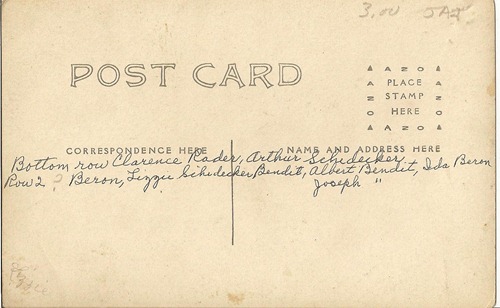 3.00 JAZ
POST CARD
AZO
PLACE
STAMP
HERE
AZO
CORRESPONDENCE HERE
NAME AND ADDRESS HERE
Bottom row Clarence Rader, Arthur Schedecker
Row 2 ? Beron, Lizzie Schedecker Bendit, Albert Bendit, Ida Beron
Joseph "